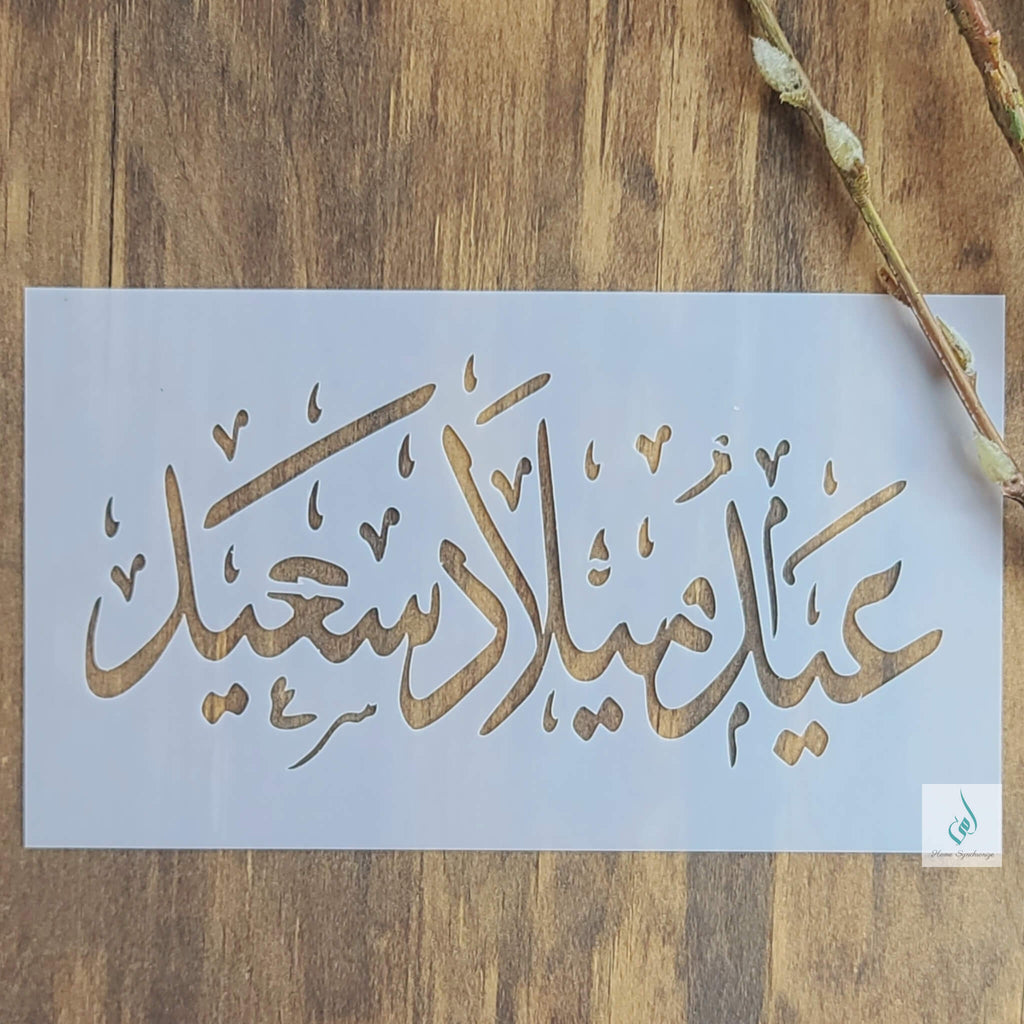 عيد ميلاد سعيد
Home Synchronize